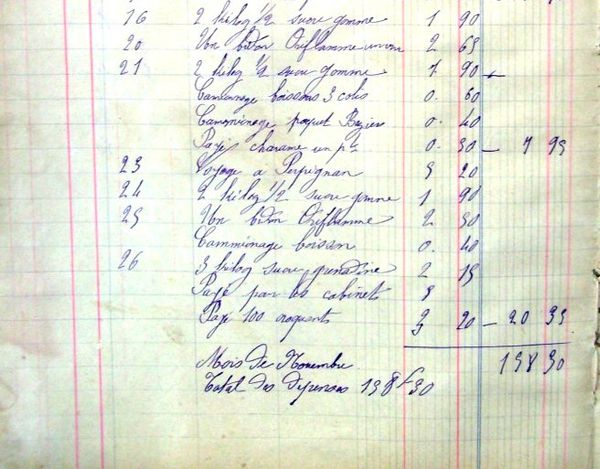 16 2 kilog 1/2 sucre gomme 1 90
20 Un bidon Oriflamme 2 65
21 2 kilog 1/2 sucre gomme 1 90 —
Camionnage boissons 3 colis 0. 60
Camionnage paquet Beziers 0. 40
Payé un pt 0. 30 — 7 95
23 Voyage a Perpignan 5 20
24 2 kilog 1/2 sucre gomme 1 90
25 Un bidon Oriflamme 2 50
Cammionage boisson 0. 40
26 3 kilog sucre grenadine 2 15
Payé par les cabinets 5
Payé 100 croquants 3 20 — 20 35
Mois de Novembre 138 30
Total des dépenses 138f30